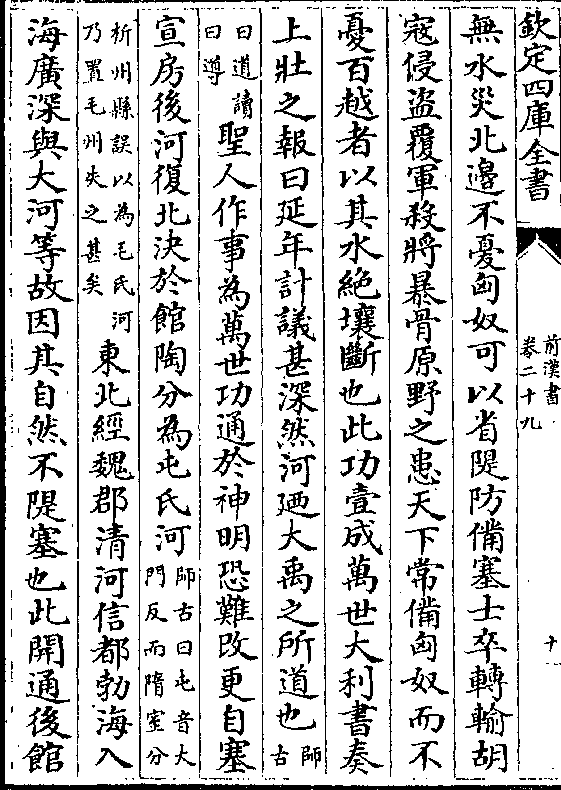 欽定四庫全書
前漢書
卷二十九
十
無水災北邊不憂匈奴可以省隄防備塞士卒轉輸胡
寇侵盜覆軍殺將暴骨原野之患天下常備匈奴而不
憂百越者以其水絶壤斷也此功壹成萬世大利書奏
上壯之報曰延年計議甚深然河廼大禹之所道也師古
曰道讀曰導聖人作事為萬世功通於神明恐難改更自塞
宣房後河復北決於館陶分為屯氏河師古曰屯音大門反而隋室分
析州縣誤以為毛氏河乃置毛州失之甚矣東北經魏郡清河信都勃海入
海廣深與大河等故因其自然不隄塞也此開通後館